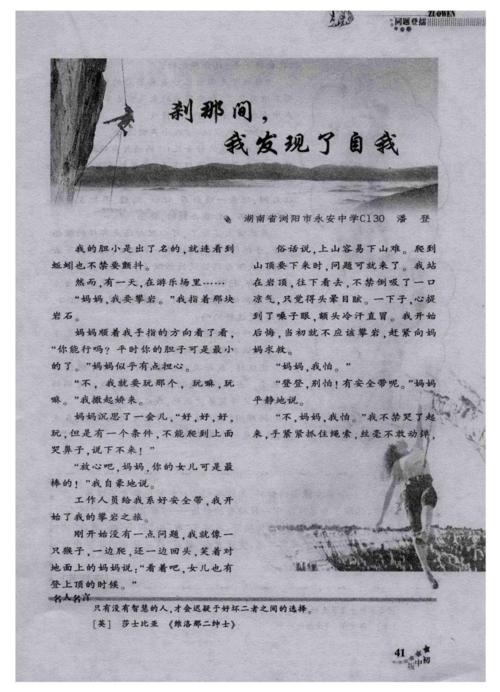 ZUOWEN
同题登擂
刹那间，
我发现了自我
湖南省浏阳市永安中学C130 潘 登
我的胆小是出了名的，就连看到
蚯蚓也不禁要颤抖。
然而，有一天，在游乐场里……
“妈妈，我要攀岩。”我指着那块
岩石。
妈妈顺着我手指的方向看了看，
“你能行吗？平时你的胆子可是最小
的了。”妈妈似乎有点担心。
“不，我就要玩那个，玩嘛，玩
嘛。”我撒起娇来。
妈妈沉思了一会儿，“好，好，好，
玩，但是有一个条件，不能爬到上面
哭鼻子，说下不来！”
“放心吧，妈妈，你的女儿可是最
棒的！”我自豪地说。
工作人员给我系好安全带，我开
始了我的攀岩之旅。
刚开始没有一点问题，我就像一
只猴子，一边爬，还一边回头，笑着对
地面上的妈妈说：“看着吧，女儿也有
登上顶的时候。”
俗话说，上山容易下山难。爬到
山顶要下来时，问题可就来了。我站
在岩顶，往下看去，不禁倒吸了一口
凉气，只觉得头晕目眩。一下子，心提
到了嗓子眼，额头冷汗直冒。我开始
后悔，当初就不应该攀岩，赶紧向妈
妈求救。
“妈妈，我怕。”
“登登，别怕！有安全带呢。”妈妈
平静地说。
“不，妈妈，我怕。”我不禁哭了起
来，手紧紧抓住绳索，丝毫不敢动弹，
名人名言
只有没有智慧的人，才会迟疑于好坏二者之间的选择。
［英］ 莎士比亚 《维洛那二绅士》
41
初中版